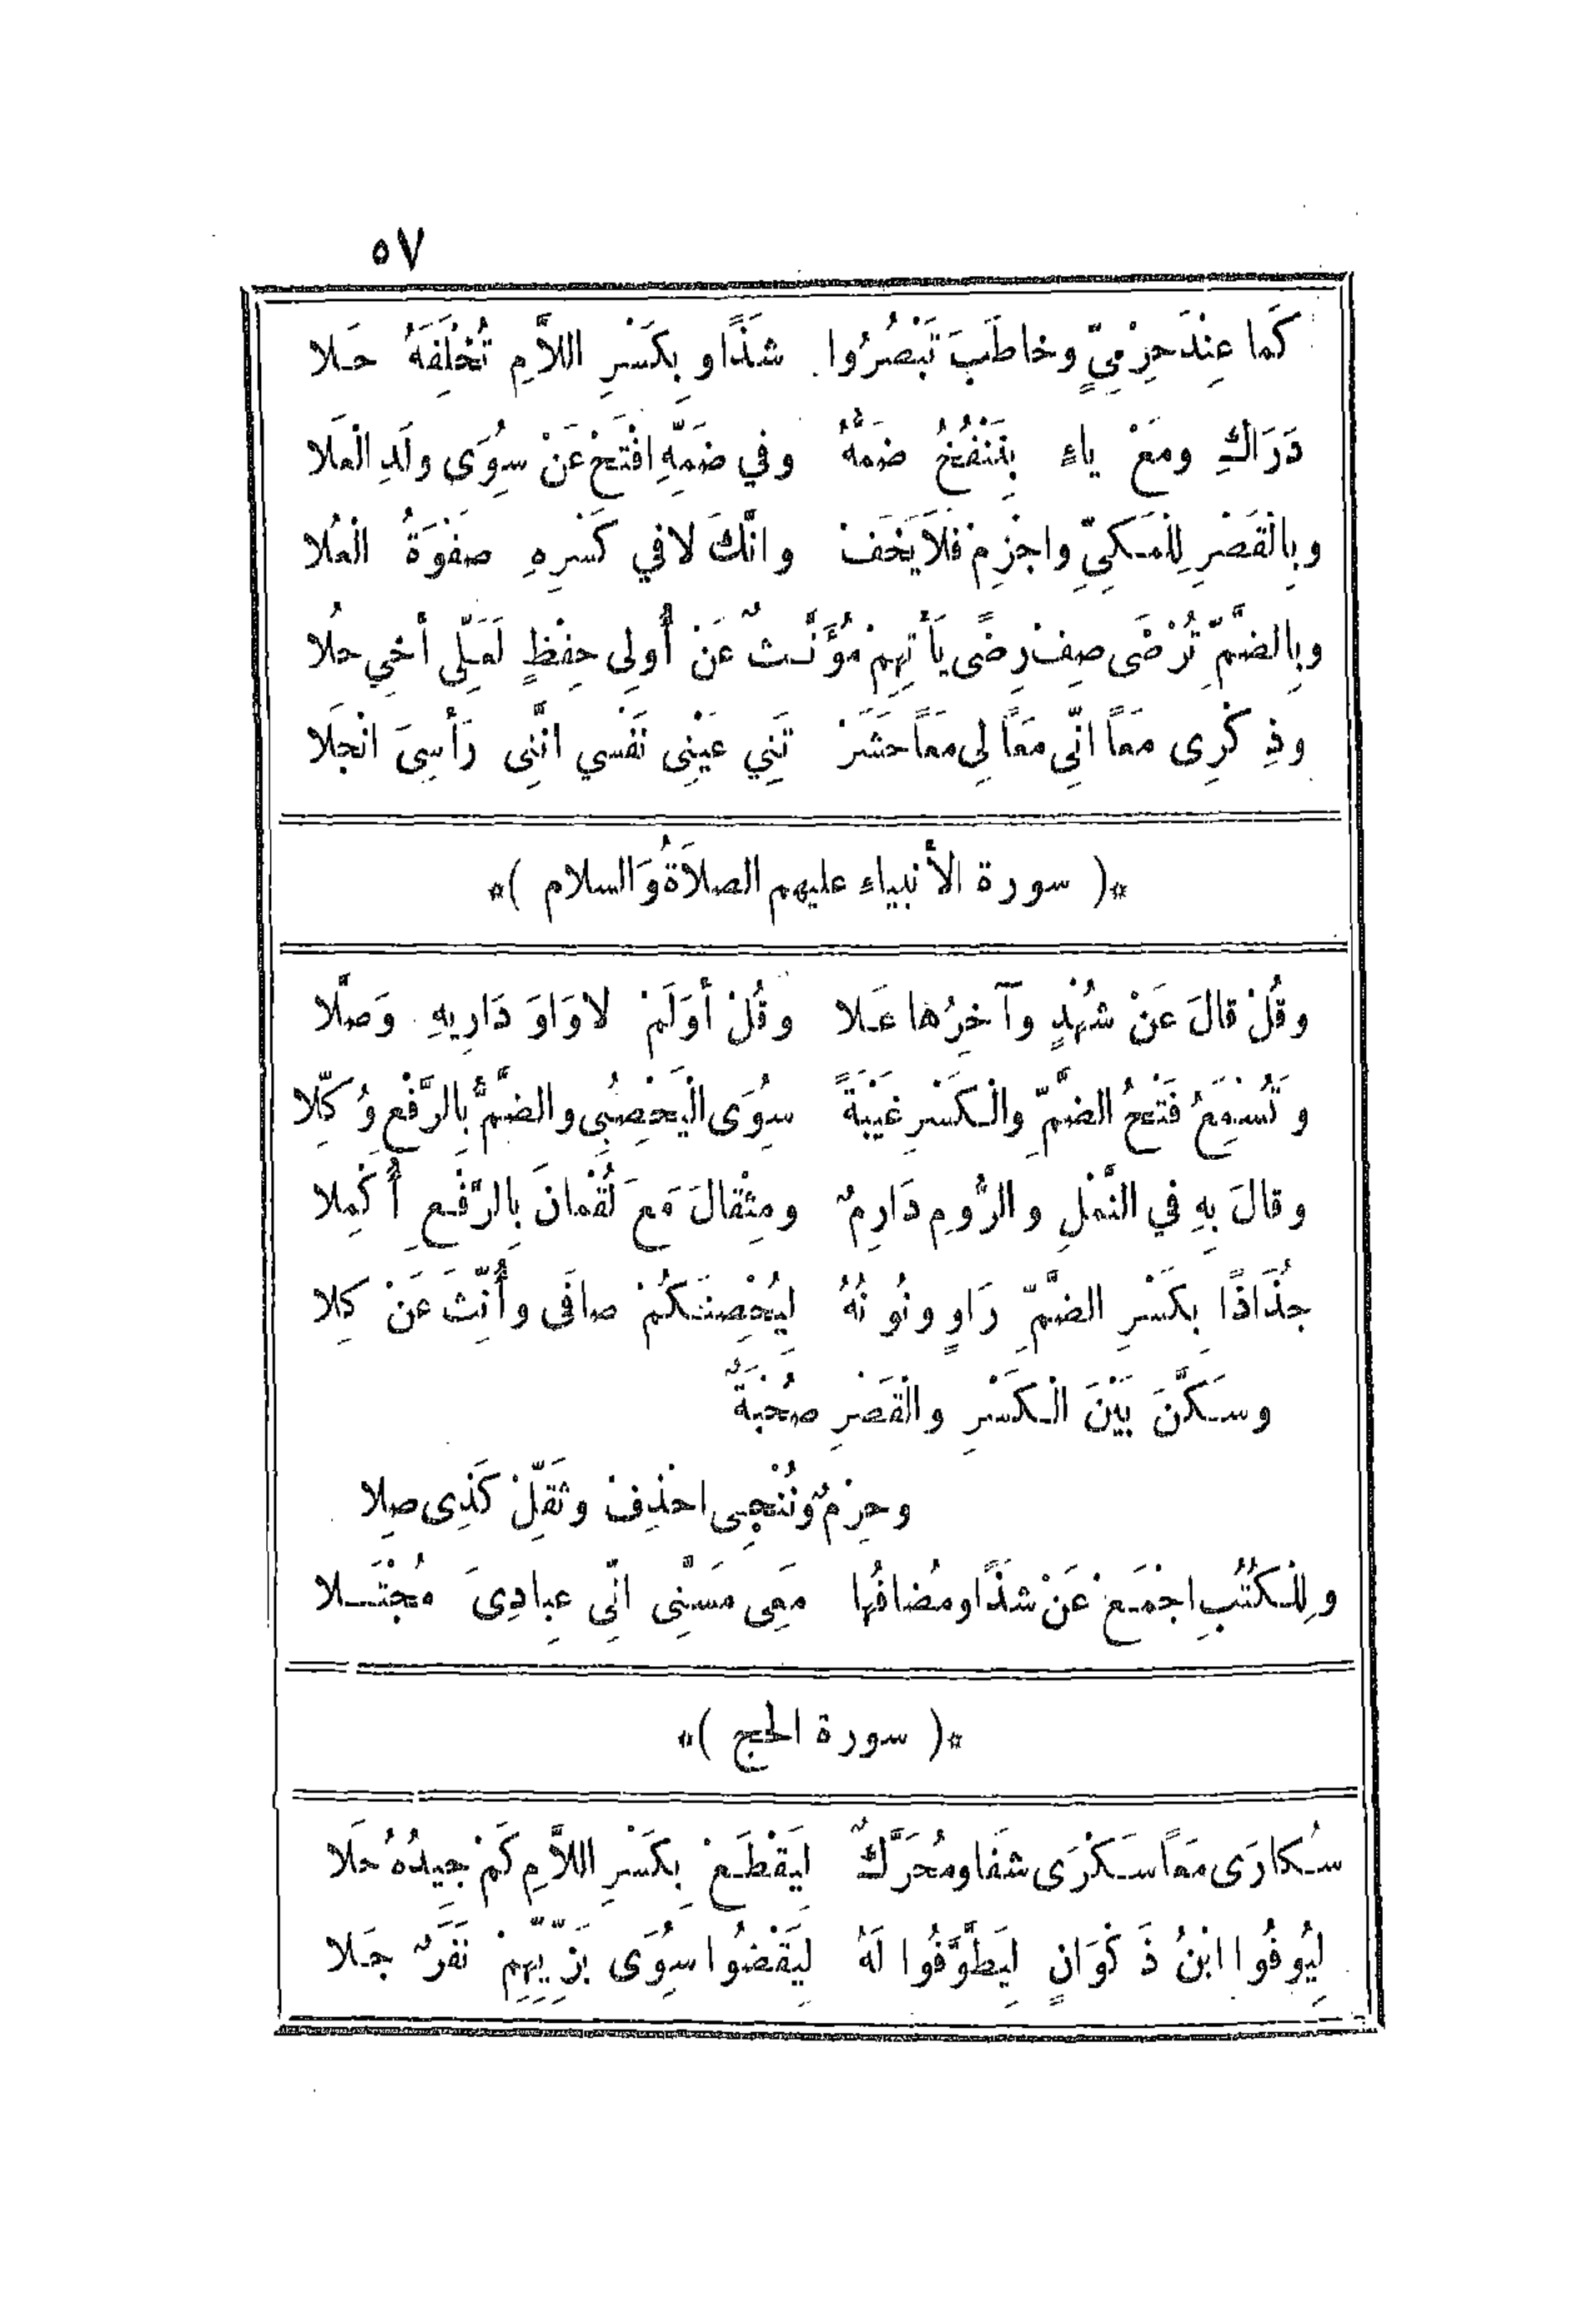 ٥٧
كَما عِنْدَ حِرْمِيٍّ وخاطَبَ تَبْصُرُوا شَذًا وبِكَسْرِ اللاَّمِ تُخْلِفَهُ حَلا
دَرَاكِ ومَعْ ياءٍ بِنَنْفُخُ ضَمُّهُ وفي ضَمِّهِ افْتَحْ عَنْ سِوَى وَلَدِ الْعَلا
وبِالْقَصْرِ لِلْمَكِيِّ واجْزِمْ فَلاَ يَخَفْ وانَّكَ لا في كَسْرِهِ صَفْوَةُ الْعُلا
وبِالضَّمِّ تُرْضَى صِفْ رِضًى يَأْتِهِمْ مُؤَنَّثٌ عَنْ أُولِى حِفْظٍ لَعَلِّى أخِي حلُا
وذِكْرِى مَعاً انِّى مَعاً لِى مَعاً حَشَرْ تَنِي عَيْنِى نَفْسي انَّنِى رَأْسِىَ انْجَلا
*( سورة الأنبياء عليهم الصلاَةُ وَالسلام )*
وقُلْ قالَ عَنْ شُهْدٍ وآخِرُها عَلا وقُلْ أوَلَمْ لا وَاوَ دَارِيهِ وَصَّلا
وَتُسْمِعُ فَتْحُ الضَّمِّ والْكَسْرِ غَيْبَةً سِوَى الْيَحْصُبِى والضَّمُّ بِالرَّفْعِ وُكِّلا
وقالَ بِهِ في النَّمْلِ والرُّومِ دَارِمٌ ومِثْقالَ مَعَ لُقْمانَ بِالرَّفْعِ أُكْمِلا
جُذَاذًا بِكَسْرِ الضَّمِّ رَاوٍ ونُونُهُ لِيُحْصِنَكُمْ صافَى وأُنِّثَ عَنْ كِلا
وسَكَّنَ بَيْنَ الْكَسْرِ والْقَصْرِ صُحْبَةٌ
وحِرْمٌ ونُنْجِى احْذِفْ وثَقِّلْ كَذِى صِلا
ولِلْكُتُبِ اجْمَعْ عَنْ شَذًا ومُضافُها مَعِى مَسَّنِى انِّى عِبادِىَ مُجْتَلا
*( سورة الحج )*
سُكارَى مَعاً سَكْرَى شَفَا ومُحَرَّكٌ لِيَقْطَعْ بِكَسْرِ اللاَّمِ كَمْ جِيدُهُ حَلَا
لِيُوفُوا ابْنُ ذَكْوَانٍ لِيَطَّوَّفُوا لَهُ لِيَقْضُوا سِوَى بَزِّيِّهِمْ نَفَرٌ جَلا